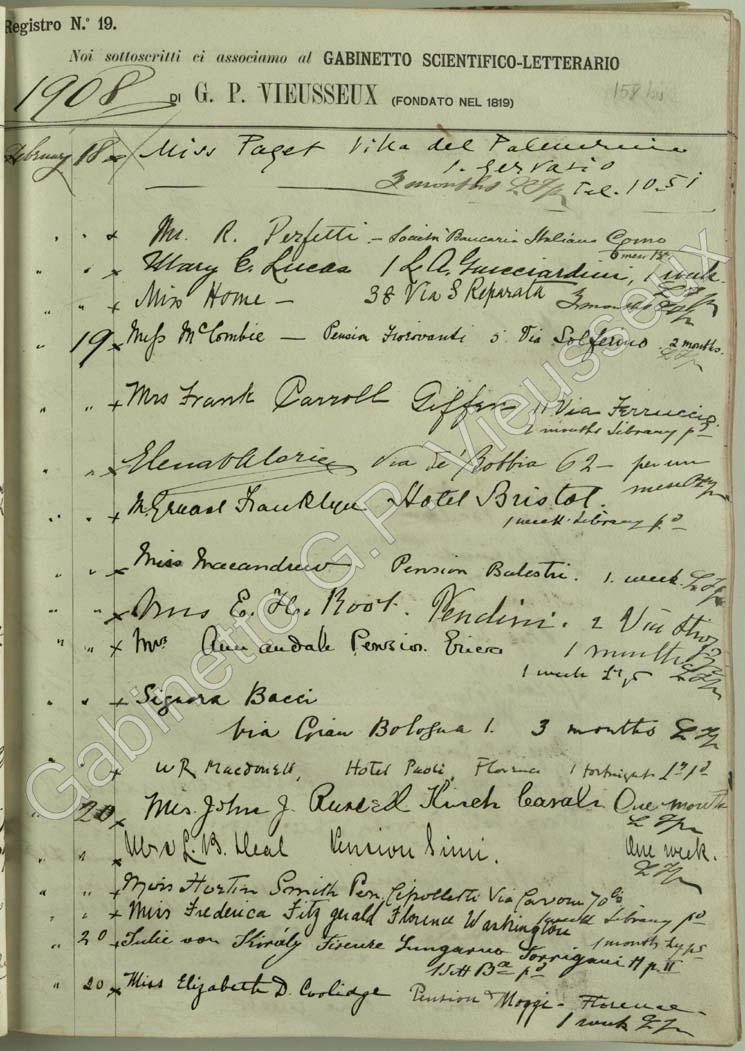 Registro N.° 19.
Noi sottoscritti ci associamo al GABINETTO SCIENTIFICO-LETTERARIO
1908 DI G. P. VIEUSSEUX (FONDATO NEL 1819)
158 bis
February 18 x Miss Paget Villa del Palmerino
S. Gervasio
3 months Tel. 10-51
" " x Mr. R. Perfetti – Società Bancaria Italiana Como
6 mesi
" " x Mary C. Lucas 1 L. A. Guicciardini, 1 week
" " x Miss Horne – 38 Via S Reparata 3 months
" 19 x Miss McCombie – Pension Fiorovanti 5 Via Solferino. 2 months.
" " x Mrs Frank Carroll Giffen 11 Via Ferruccio
2 months Library pd
" " x Elena Via de' Robbia 62 – per un
mese
" " x Franklyn Hotel Bristol.
1 week Library pd
" " x Miss Macandrew Pension Balestri. 1. week.
" " x Mrs E. H. Root. Pendini. 2 Via Strozzi
" " x Mrs Annandale Pension 1 month
1 week
" " x Signora Bacci
Via Gian Bologna 1. 3 months
" " x W R Macdonell, Hotel Paoli, Florence 1 fortnight
" 20 x Mrs. John J. Russell One month
" " x Mrs L. B. Heal Pension Simi. One week.
" " x Miss Hortin Smith Pen. Cipolletti Via Cavour 70
1 week Library pd
" " x Miss Frederica Fitzgerald Florence Washington
1 month
" 20 x Julie von Király Firenze Lungarno Torrigiani
" 20 x Miss Elizabeth D. Coolidge Pension Moggi – Florence –
1 week
Gabinetto G.P. Vieusseux